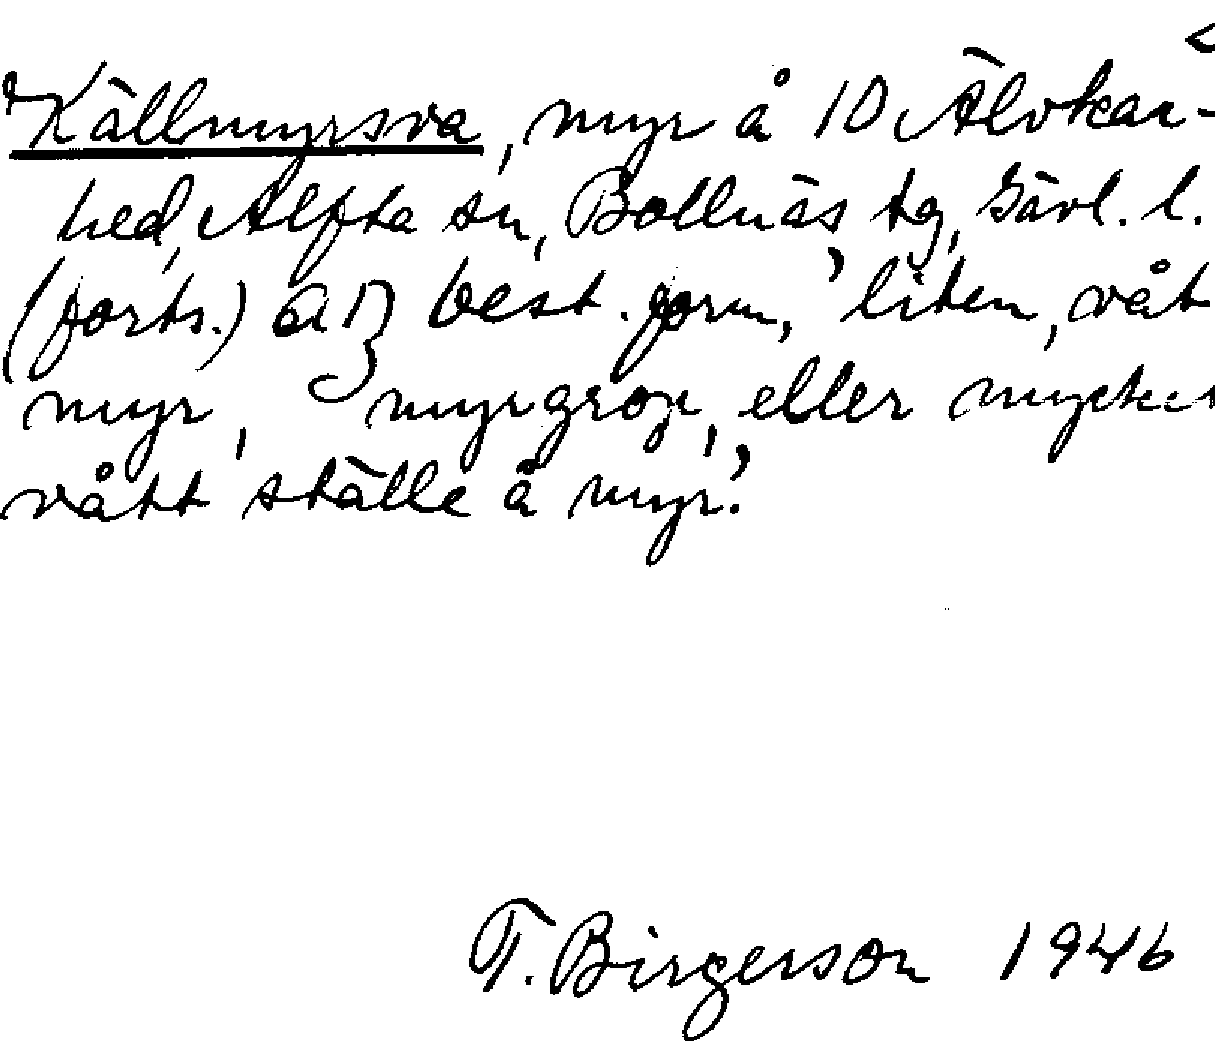 Källmyrsva, myr å 10 Älvkar-
hed, Alfta sn, Bollnäs tg, Gävl. l.
(forts.) best. form, 'liten, våt
myr, myrgrop, eller mycket
vått ställe å myr.'
T. Birgerson 1946